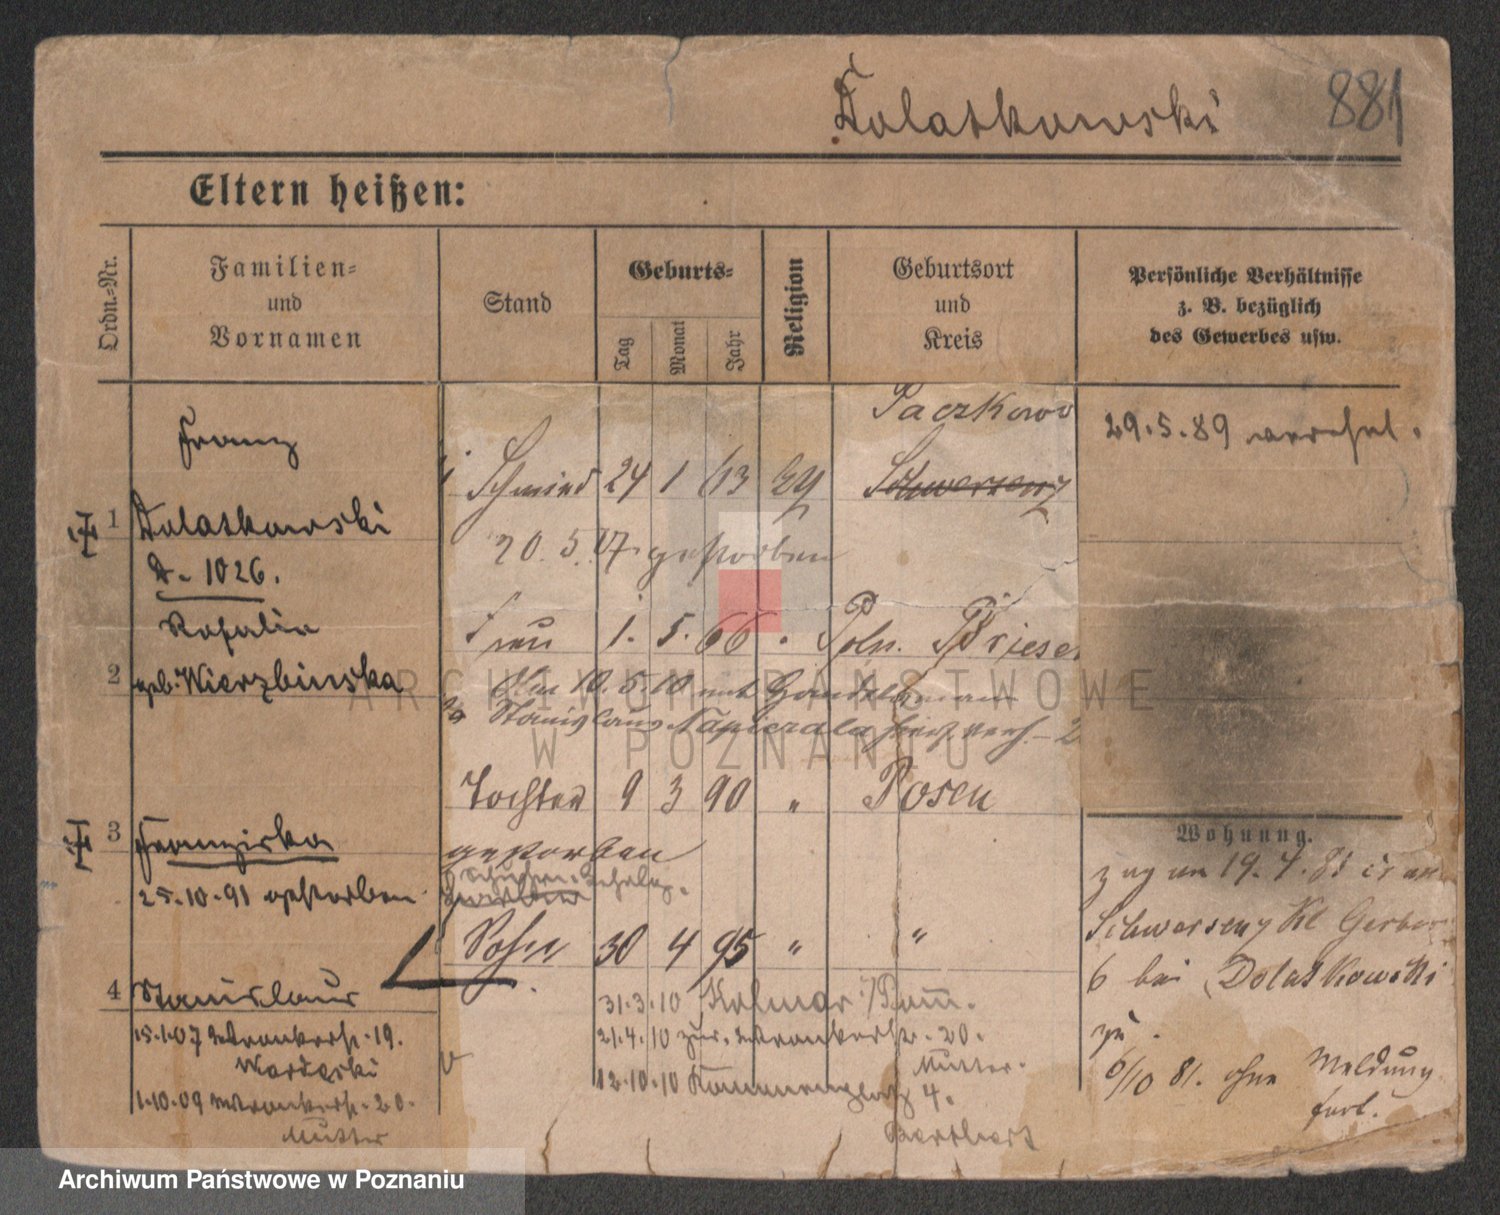 Dolatkowski 881
Eltern heißen:
Ordn.-Nr.
Familien-
und
Vornamen
Stand
Geburts-
Tag
Monat
Jahr
Religion
Geburtsort
und
Kreis
Persönliche Verhältnisse
z. B. bezüglich
des Gewerbes usw.
Paczkowo
Franz
29.5.89 verehel.
Schmied 24 1 63 Schwersenz
1 Dolatkowski
20.5.07 gestorben
D. 1026.
Rosalie
Frau 1. 5. 66 " Poln. Briesen
2 geb. Wierzbinska
Am 10.5.10 mit
Stanislaus Napierala
Tochter 9 3 90 " Posen
3 Franziska
gestorben
25.10.91 gestorben
Sohn 30 4 95 " "
4 Stanislaus
31.3.10 Kolmar i/Pom.
15.1.07 Wronkerstr. 19.
21.4.10 zur. Wronkerstr. 20.
Mutter.
12.10.10 4.
1.10.09 Wronkerstr. 20.
Mutter
Wohnung.
zug am 19.4.81
Schwersenz Kl Gerber
6 bei Dolatkowski
zu.
6/10 81. ohne Meldung
fort.
ARCHIWUM PAŃSTWOWE
W POZNANIU
Archiwum Państwowe w Poznaniu